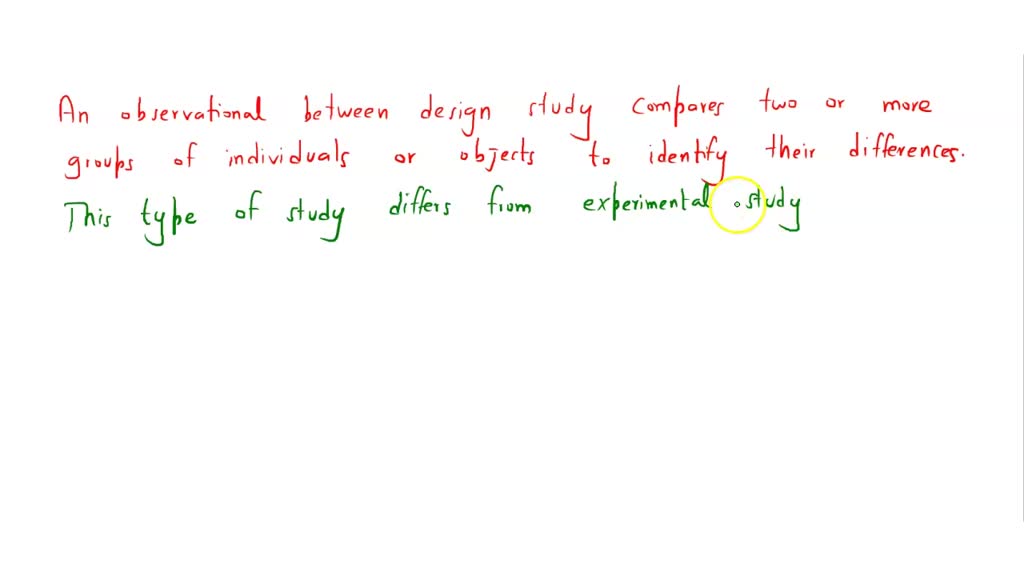 An observational between design study compares two or more
groups of individuals or objects to identify their differences.
This type of study differs from experimental study